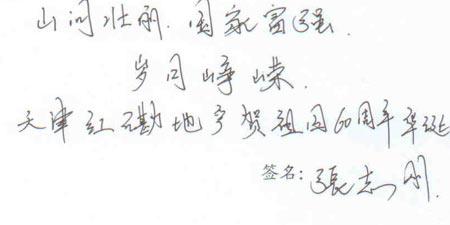 山河壮丽.国家富强.
岁月峥嵘.
天津红磡地产贺祖国60周年华诞
签名:張志刚.